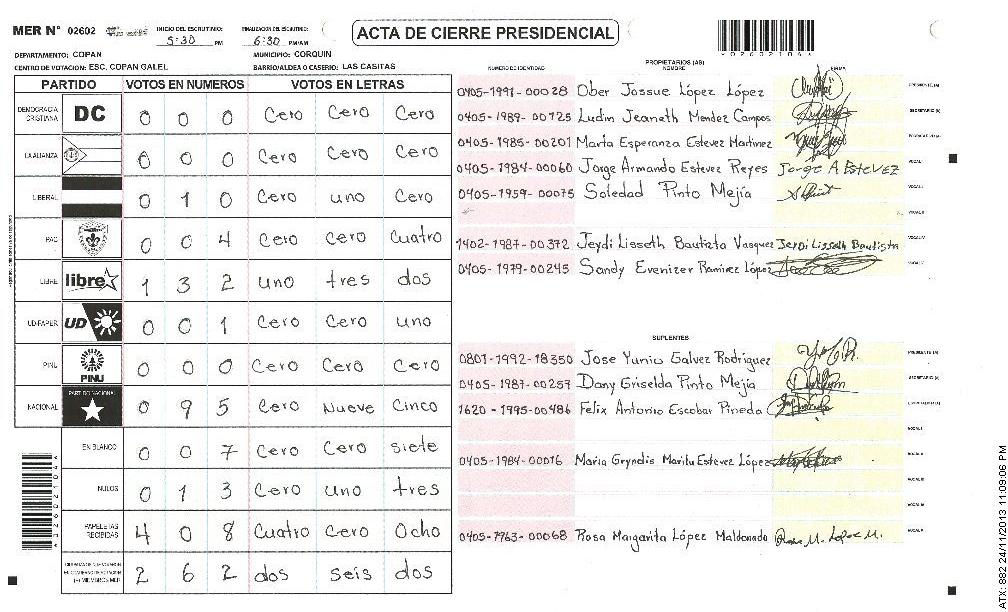 MER N° 02602 INICIO DEL ESCRUTINIO: 5:30 PM FINALIZACION DEL ESCRUTINIO: 6:30 PM/AM ACTA DE CIERRE PRESIDENCIAL
DEPARTAMENTO: COPAN MUNICIPIO: CORQUIN
CENTRO DE VOTACION: ESC. COPAN GALEL BARRIO/ALDEA O CASERIO: LAS CASITAS
PARTIDO VOTOS EN NUMEROS VOTOS EN LETRAS
DEMOCRACIA CRISTIANA DC 0 0 0 Cero Cero Cero
LA ALIANZA 0 0 0 Cero Cero Cero
LIBERAL 0 1 0 Cero uno Cero
PAC 0 0 4 Cero Cero Cuatro
LIBRE libre 1 3 2 uno tres dos
UD-FAPER UD 0 0 1 Cero Cero uno
PINU PINU 0 0 0 Cero Cero Cero
NACIONAL PARTIDO NACIONAL 0 9 5 Cero Nueve Cinco
EN BLANCO 0 0 7 Cero Cero siete
NULOS 0 1 3 Cero uno tres
PAPELETAS RECIBIDAS 4 0 8 Cuatro Cero Ocho
(+) MIEMBROS MER 2 6 2 dos seis dos
PROPIETARIOS (AS)
NUMERO DE IDENTIDAD NOMBRE FIRMA
0405-1991-00028 Ober Jossue López López PRESIDENTE (A)
0405-1989-00725 Ludin Jeaneth Mendez Campos SECRETARIO (A)
0405-1985-00201 Marta Esperanza Estevez Martinez
0405-1984-00060 Jorge Armando Estevez Reyes Jorge A Estevez
0405-1959-00075 Soledad Pinto Mejía
1402-1987-00372 Jeydi Lisseth Bautista Vasquez Jeydi Lisseth Bautista
0405-1979-00245 Sandy Evenizer Ramirez López
SUPLENTES
0801-1992-18350 Jose Yunio Galvez Rodriguez PRESIDENTE (A)
0405-1987-00257 Dany Griselda Pinto Mejía SECRETARIO (A)
1620-1995-00486 Felix Antonio Escobar Pineda
0405-1984-00016 Maria Gryndis Maritu Estevez López
0405-7963-00068 Rosa Margarita López Maldonado Rosa M. Lopez M.
ATX: 882 24/11/2013 11:09:06 PM